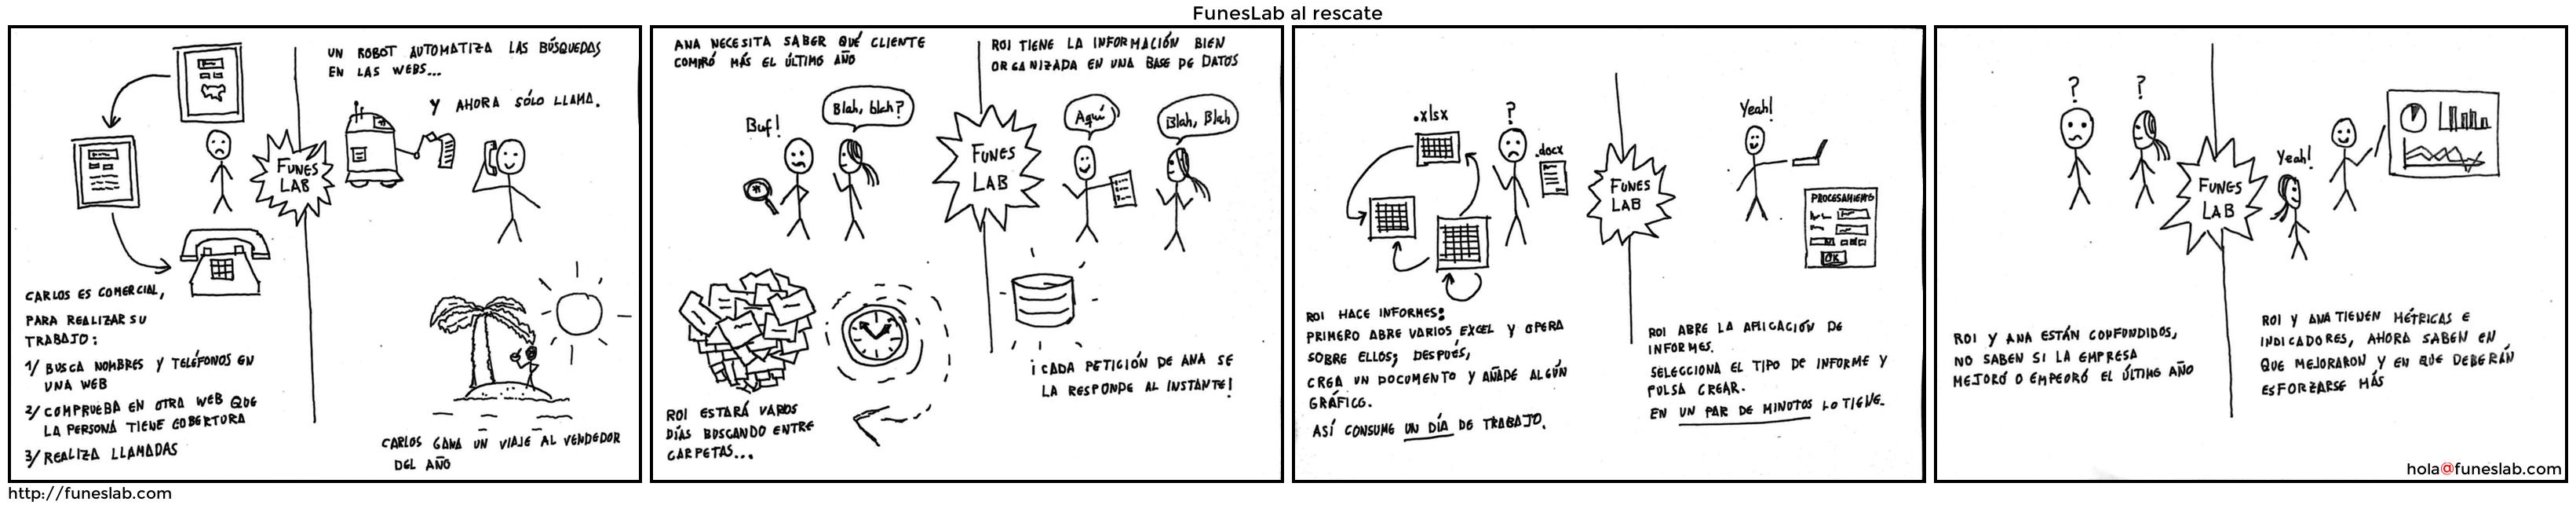 FunesLab al rescate
UN ROBOT AUTOMATIZA LAS BÚSQUEDAS
EN LAS WEBS...
Y AHORA SÓLO LLAMA.
FUNES
LAB
CARLOS ES COMERCIAL,
PARA REALIZAR SU
TRABAJO:
1/ BUSCA NOMBRES Y TELÉFONOS EN
UNA WEB
2/ COMPRUEBA EN OTRA WEB QUE
LA PERSONA TIENE COBERTURA
3/ REALIZA LLAMADAS
CARLOS GANA UN VIAJE AL VENDEDOR
DEL AÑO
ANA NECESITA SABER QUÉ CLIENTE
COMPRÓ MÁS EL ÚLTIMO AÑO
Buf!
Blah, blah?
ROI ESTARÁ VAROS
DÍAS BUSCANDO ENTRE
CARPETAS...
FUNES
LAB
ROI TIENE LA INFORMACIÓN BIEN
ORGANIZADA EN UNA BASE DE DATOS
Aquí
Blah, Blah
¡CADA PETICIÓN DE ANA SE
LA RESPONDE AL INSTANTE!
.xlsx
?
.docx
ROI HACE INFORMES:
PRIMERO ABRE VARIOS EXCEL Y OPERA
SOBRE ELLOS; DESPUÉS,
CREA UN DOCUMENTO Y AÑADE ALGÚN
GRÁFICO.
ASÍ CONSUME UN DÍA DE TRABAJO.
FUNES
LAB
Yeah!
PROCESAMIENTO
OK
ROI ABRE LA APLICACIÓN DE
INFORMES.
SELECCIONA EL TIPO DE INFORME Y
PULSA CREAR.
EN UN PAR DE MINUTOS LO TIENE.
? ?
ROI Y ANA ESTÁN CONFUNDIDOS,
NO SABEN SI LA EMPRESA
MEJORÓ O EMPEORÓ EL ÚLTIMO AÑO
FUNES
LAB
Yeah!
ROI Y ANA TIENEN MÉTRICAS E
INDICADORES, AHORA SABEN EN
QUE MEJORARON Y EN QUE DEBERÁN
ESFORZARSE MÁS
hola@funeslab.com
http://funeslab.com